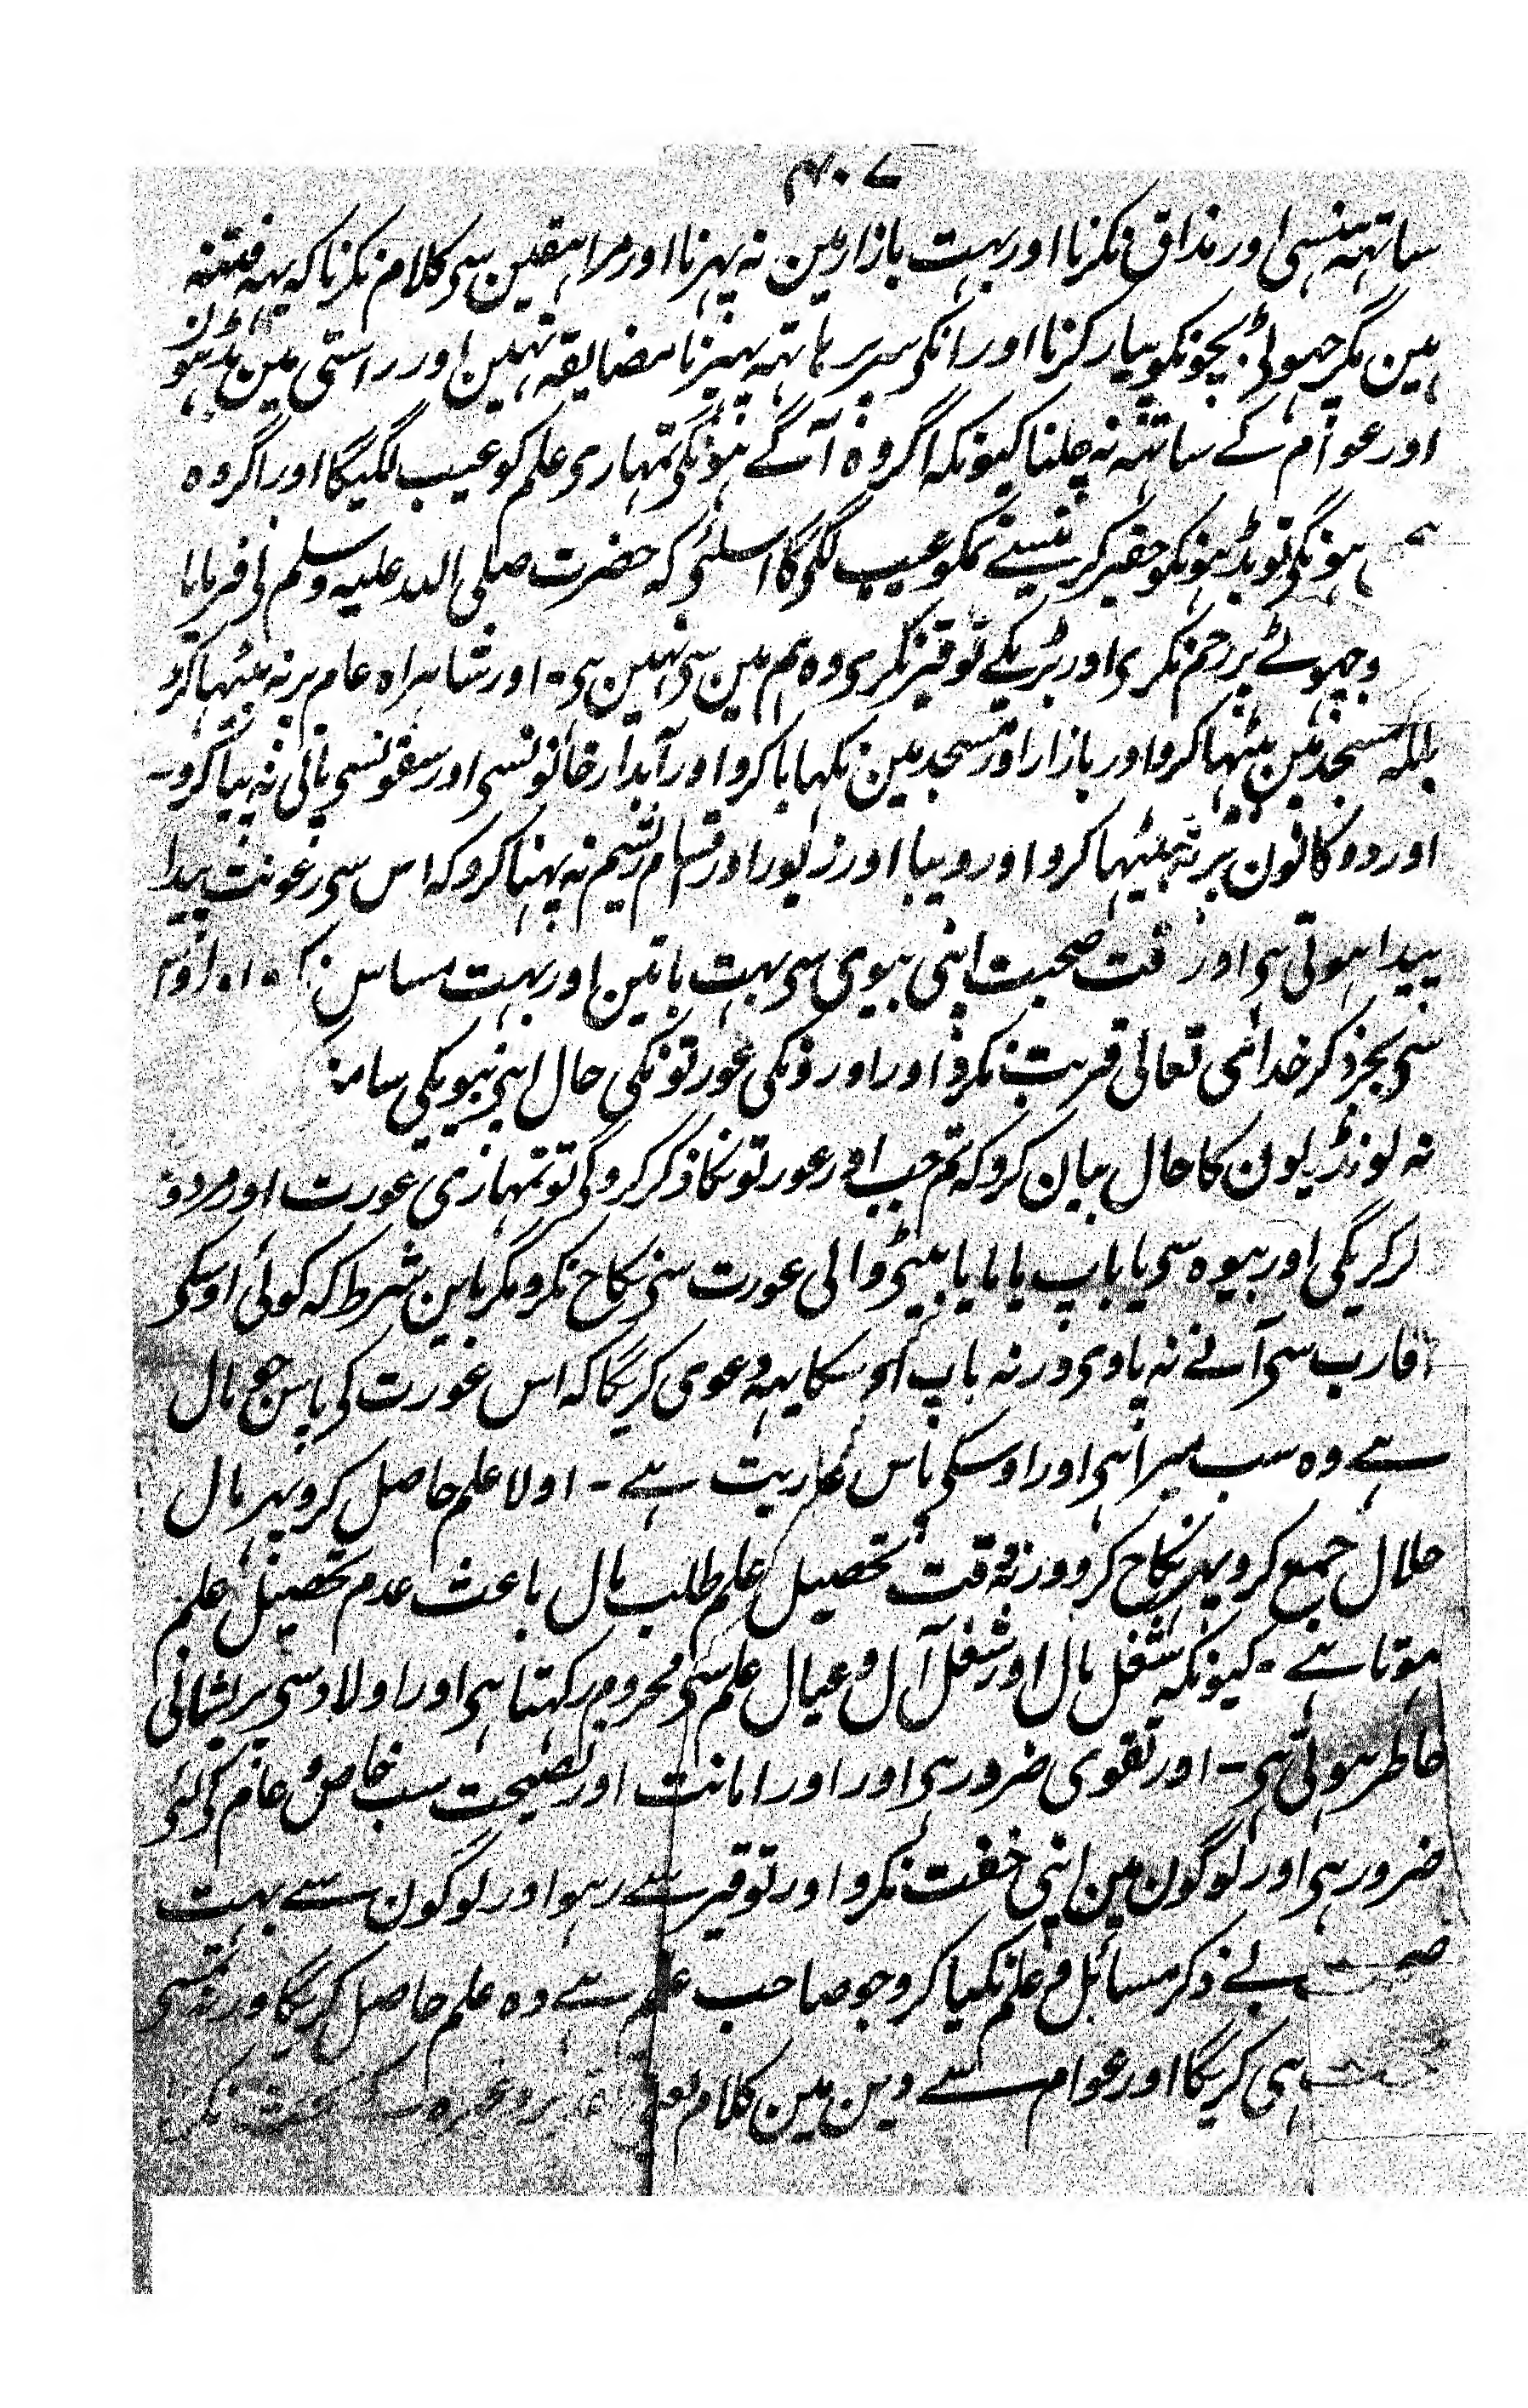 ۴۰۷
ساتہہ ہنسی اور مذاق نکرنا اور بہت بازار مین نہ پہرنا اور مراہقین سی کلام نکرنا کہ یہہ فتنہ
ہین مگر چہوٹی بچونکو پیار کرنا اور انکی سر پر ہاتہہ پہیرنا مضایقہ نہین اور راستی مین
اور عوام کے ساتہہ نہ چلنا کیونکہ اگر وہ آگے ہونگی تمہاری علم کو عیب لگیگا اور اگر وہ
ہونگی تو بڈہونکو حقیر کرنیسے تمکو عیب لگیگا اسلئی کہ حضرت صلی اللہ علیہ وسلم نی فرمایا
چہوٹے پر رحم نکری اور بڑیکے توقیر نکری وہ ہم مین سی نہین ہی۔ اور شاہراہ عام پر نہ بیٹہا کرو
بلکہ مسجد مین بیٹہا کرو اور بازار اور مسجد مین نکہایا کرو اور آبدار خانونسی اور سقونسی پانی نہ پیا کرو۔
اور دوکانون پر نہ بیٹہا کرو اور دیبا اور زیور اور اقسام ریشم نہ پہنا کرو کہ اس سی رعونت پیدا
پیدا ہوتی ہی اور وقت صحبت اپنی بیوی سی بہت باتین اور بہت مساس
سی بجز ذکر خدائی تعالی قربت نکرو اور اورونکی عورتونکی حال اپنی بیویکی
نہ لونڈیون کا حال بیان کرو کہ تم جب اور عورتونکا ذکر کروگی تو تمہاری عورت اور مردو
کریگی اور بیوہ سی یا باپ یا بیٹی والی عورت سی نکاح نکرو مگر باین شرط کہ کوئی اوسکی
اقارب سی آنے نہ پاوی ورنہ باپ اوسکا یہہ دعوی کریگا کہ اس عورت کی پاس جو مال
ہے وہ سب میرا ہی اور اوسکی پاس عاریت ہے۔ اولا علم حاصل کرو پہر مال
حلال جمع کرو پہر نکاح کرو ورنہ وقت تحصیل علم طلب مال باعث عدم تحصیل علم
ہوتا ہے۔ کیونکہ شغل مال اور شغل آل و عیال علم سی محروم رکہتا ہی اور اولاد سی پریشانی
خاطر ہوتی ہی۔ اور تقوی ضرور ہی اور اور امانت اور نصیحت سب خاص و عام کی لئی
ضرور ہی اور لوگون مین اپنی خفت نکرو اور توقیر سے رہو اور لوگون سے بہت
بے ذکر مسائل و علم نکیا کرو جو صاحب علم ہے وہ علم حاصل کریگا ورنہ تمسی
ہی کریگا اور عوام سے دین مین کلام